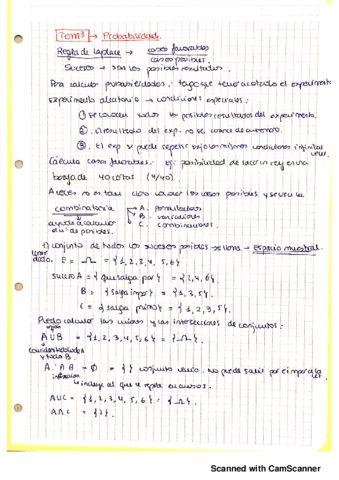 Tema 3 → Probabilidad.
Regla de Laplace → casos favorables
casos posibles.
Suceso → son los posibles resultados.
Para calcular probabilidades: tengo que tener acotado el experimento
Experimento aleatorio → condiciones especiales:
① se conocen todos los posibles resultados del experimento.
②. El resultado del exp. no se conoce de antemano.
③. El exp se puede repetir bajo las mismas condiciones infinitas
veces.
Calcular casos favorables. Ej: posibilidad de sacar un rey en una
baraja de 40 cartas (4/40).
A veces no es tan claro conocer los casos posibles y se usa la
combinatoria → A. permutaciones
ayuda a calcular B. variaciones
posibles. C. combinaciones.
conjunto de todos los sucesos posibles se llama → espacio muestral.
dado. E = Ω = {1, 2, 3, 4, 5, 6}
suceso A = {que salga par} = {2, 4, 6}
B = {salga impar} = {1, 3, 5}
C = {salga primo} = {1, 2, 3, 5}
Puedo calcular las uniones y las intersecciones de conjuntos:
A U B = {1, 2, 3, 4, 5, 6} = {Ω}
y todo B.
A ∩ B = Ø = { } conjunto vacío. No puede salir par e impar a la
vez
intersección
incluye al que se repite en ambos.
A U C = {1, 2, 3, 4, 5, 6} = {Ω}
A ∩ C = {2}
Scanned with CamScanner